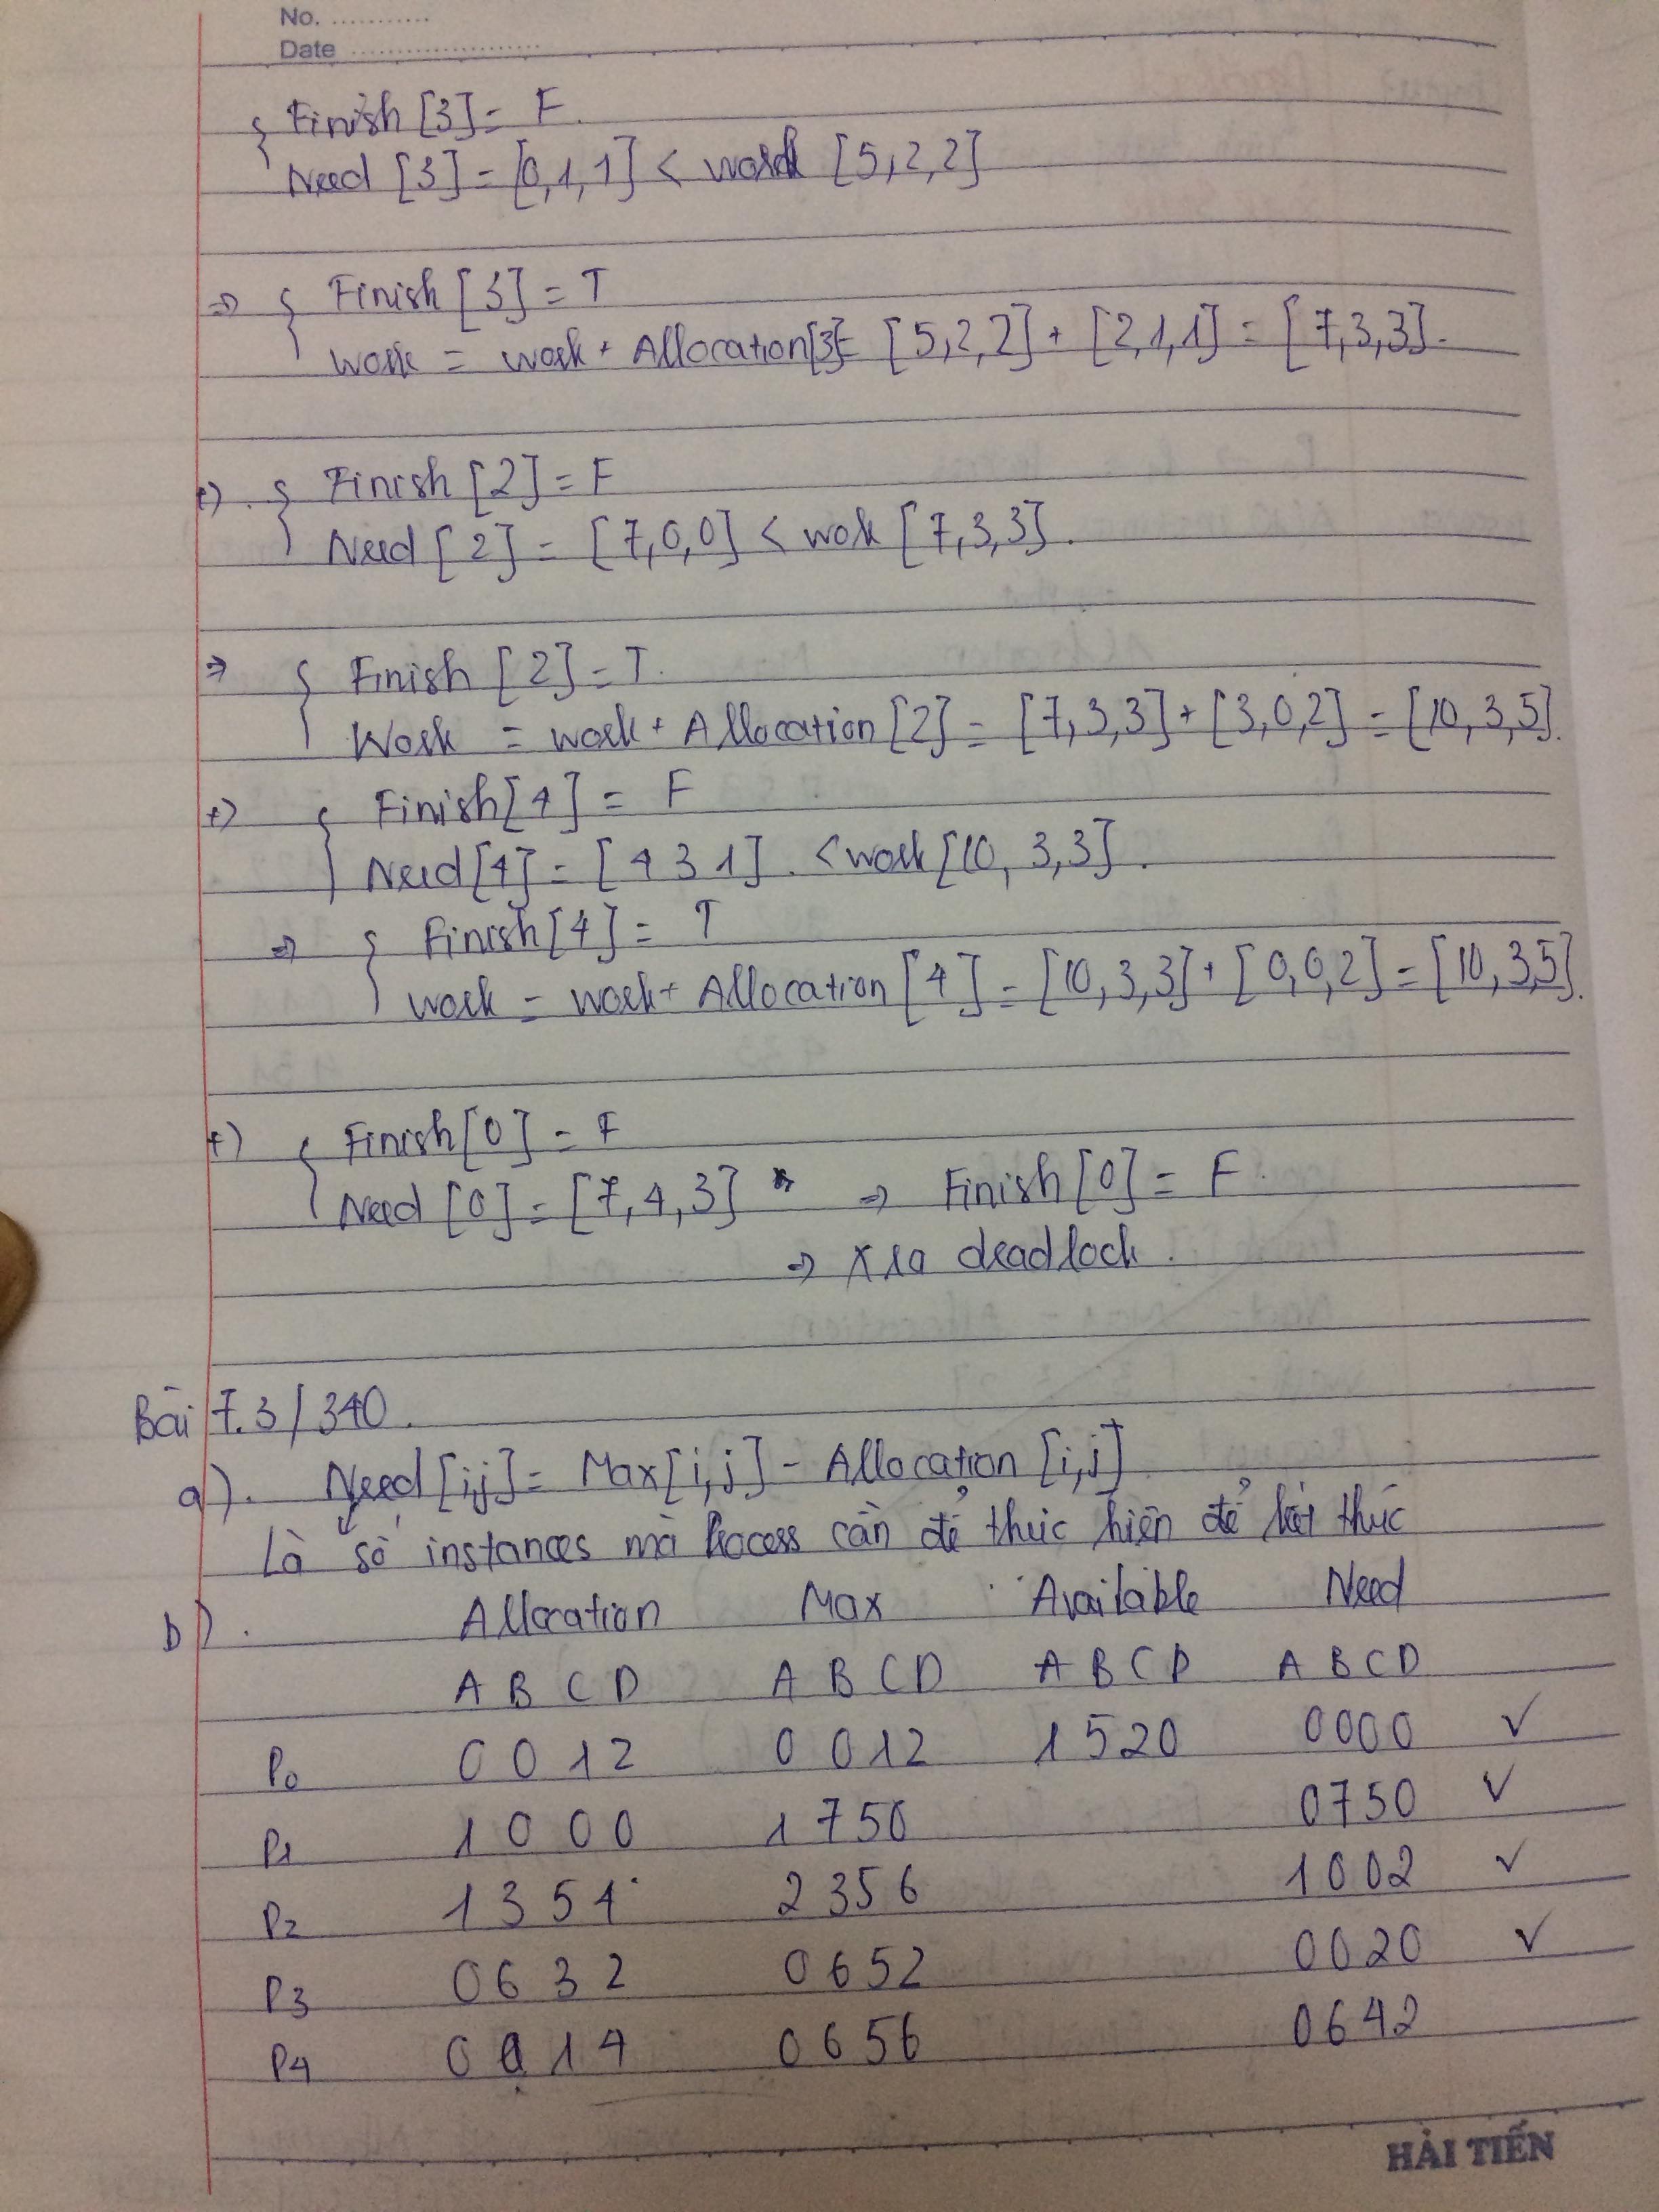 No. ...........
Date .....................
{ Finish [3] = F.
Need [3] = [0,1,1] < work [5,2,2]
=> { Finish [3] = T
work = work + Allocation[3] = [5,2,2] + [2,1,1] = [7,3,3].
+) . { Finish [2] = F
Need [2] = [7,0,0] < wok [7,3,3].
=> { Finish [2] = T.
Work = work + Allocation [2] = [7,3,3] + [3,0,2] = [10,3,5].
+) { Finish [4] = F
Need [4] = [4 3 1] . < work [10, 3,3].
=> { Finish [4] = T
work = work + Allocation [4] = [10,3,3] + [0,0,2] = [10,3,5].
+) { Finish [0] = F
Need [0] = [7,4,3] => Finish [0] = F.
=> xra deadlock.
Bài 7.3 / 340.
a). Need [i,j] = Max [i,j] - Allocation [i,j]
Là số instances mà Process cần để thực hiện để kết thúc
b). Allocation Max Available Need
A B C D A B C D A B C D A B C D
P0 0 0 1 2 0 0 1 2 1 5 2 0 0 0 0 0 ✓
P1 1 0 0 0 1 7 5 0 0 7 5 0 ✓
P2 1 3 5 4 2 3 5 6 1 0 0 2 ✓
P3 0 6 3 2 0 6 5 2 0 0 2 0 ✓
P4 0 0 1 4 0 6 5 6 0 6 4 2
HẢI TIẾN